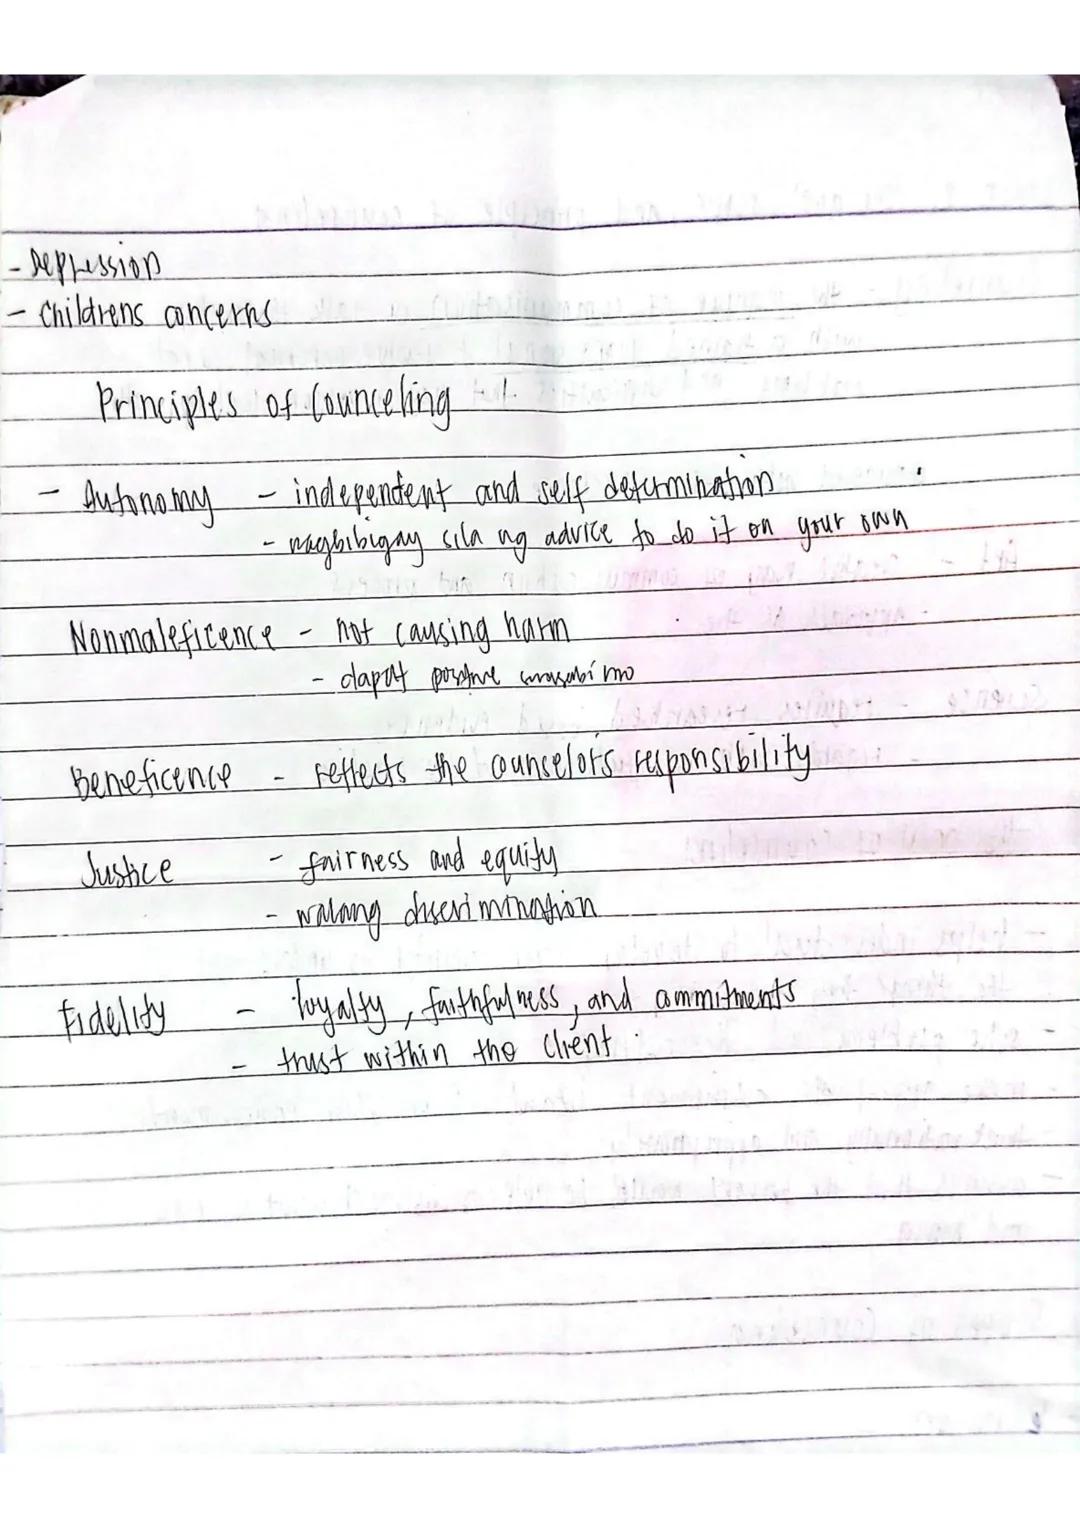 - Depression
- Childrens concerns
Principles of Counceling
- Autonomy - independent and self determination
- nagbibigay sila ng advice to do it on your own
Nonmaleficence - not causing harm
- dapat positive sinasabi mo
Beneficence - reflects the counselor's responsibility
Justice - fairness and equity
- walang discrimination
Fidelity - loyalty, faithfulness, and commitments
- trust within the client